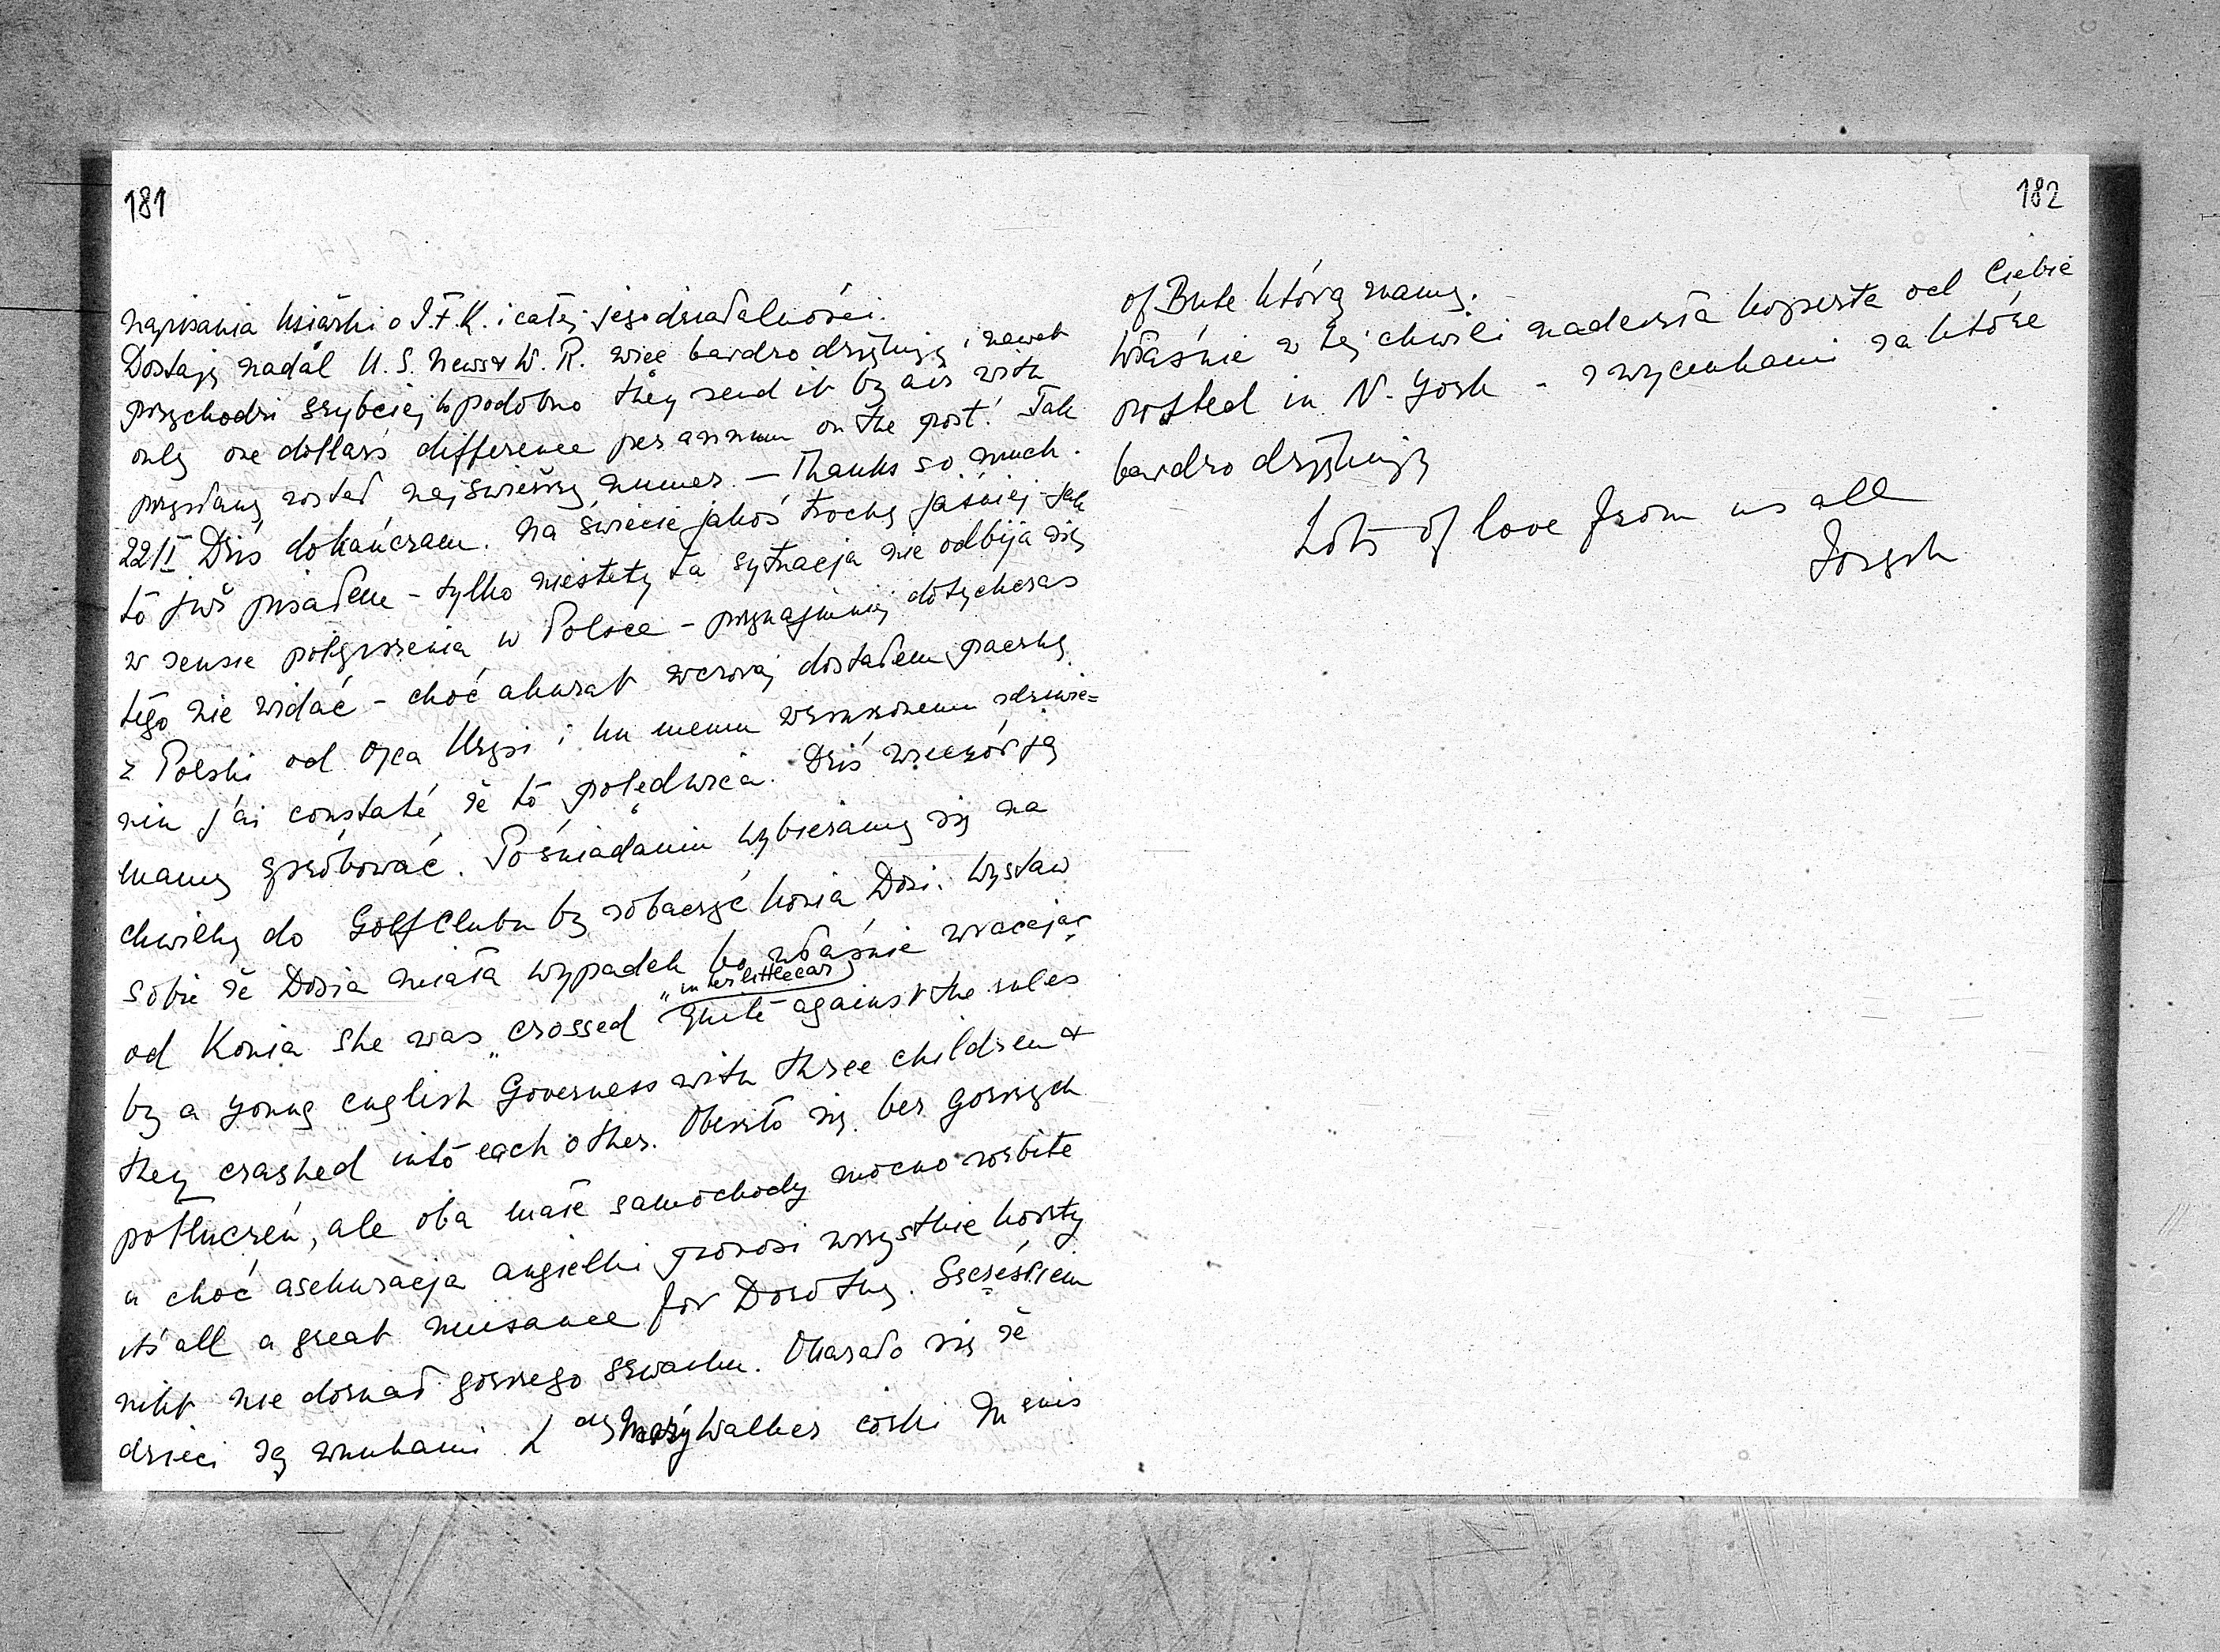 181
napisania książki o J.F.K. i całej jego działalności.
Dostaję nadal U.S. News & W.R. więc bardzo dziękuję i nawet
przychodzi szybciej bo podobno they send it by air with
only one dollars difference per annum on the post! Tak
przysłany został najświeższy numer. — Thanks so much.
22/I Dziś dokańczam. Na świecie jakoś trochę jaśniej jak
to już pisałem - tylko niestety ta sytuacja nie odbija się
w sensie polepszenia w Polsce - przynajmniej dotychczas
tego nie widać - choć akurat wczoraj dostałem paczkę
z Polski od Ojca Krysi i ku memu wzruszonemu zdziwie=
niu j'ai constaté że to polędwica. Dziś wieczór ją
mamy spróbować. Po śniadaniu wybieramy się na
chwilkę do Golf Clubu by zobaczyć konia Dosi. Wystaw
sobie że Dosia miała wypadek bo właśnie wracając
od Konia she was „crossed „in her little car" quite against the rules
by a young english Governess with three children &
they crashed into each other. Obeszło się bez gorszych
potłuczeń, ale oba małe samochody mocno rozbite
a choć asekuracja angielki ponosi wszystkie koszty
its all a great nuisance for Dorothy. Szczęściem
nikt nie doznał gorszego szwanku. Okazało się że
dzieci są wnukami Lady Mary Walker córki Mnis
182
of Bute którą znamy.
Właśnie w tej chwili nadeszła koperta od Ciebie
posted in N. York - z wycinkami za które
bardzo dziękuję
Lots of love from us all
Józych